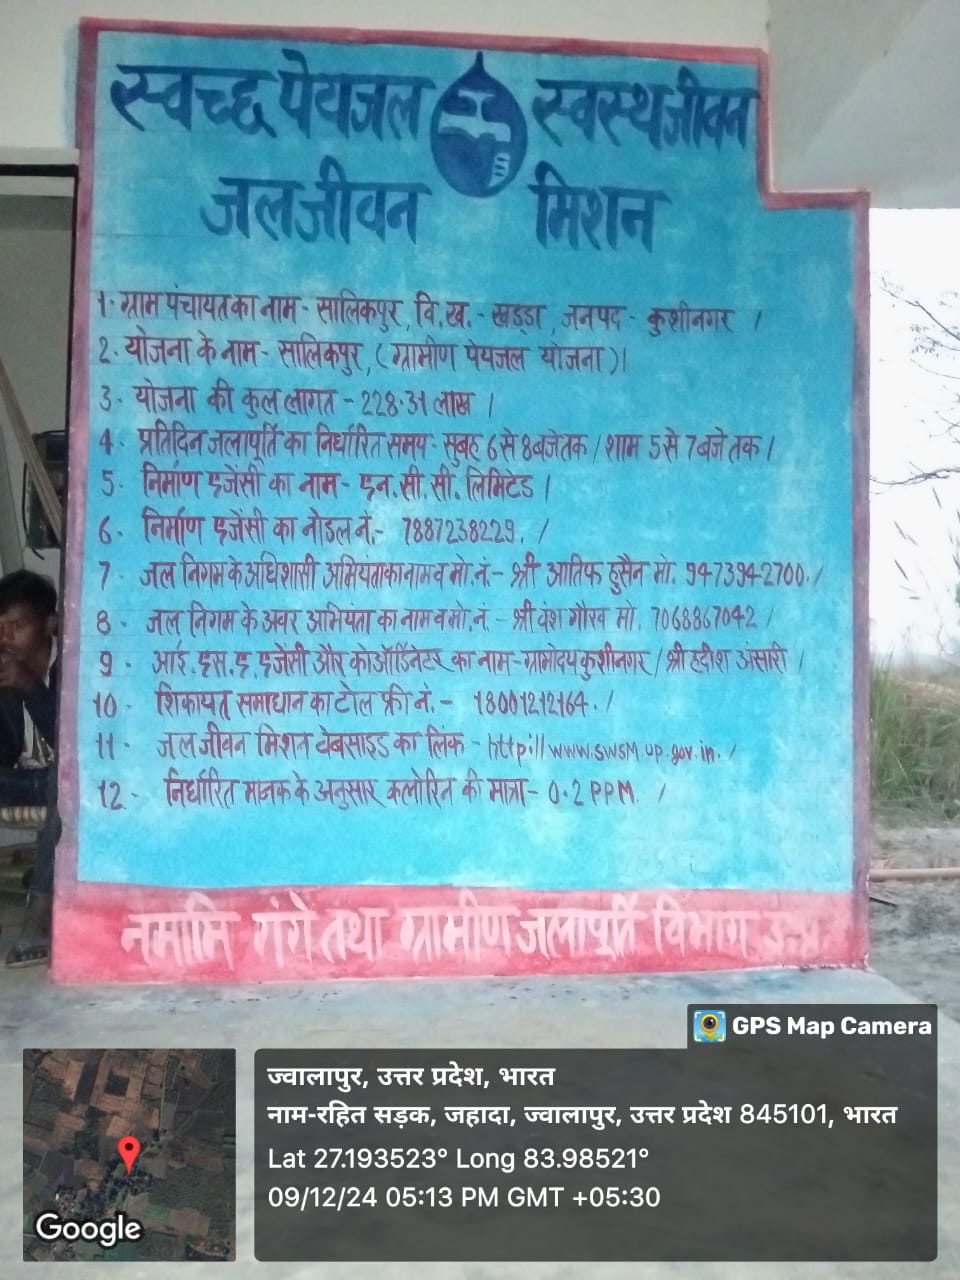 स्वच्छ पेयजल स्वस्थ जीवन
जल जीवन मिशन
1. ग्राम पंचायत का नाम - सालिकपुर, वि.ख. - खड्डा, जनपद - कुशीनगर ।
2. योजना के नाम - सालिकपुर, (ग्रामीण पेयजल योजना)।
3. योजना की कुल लागत - 228.31 लाख ।
4. प्रतिदिन जलापूर्ति का निर्धारित समय - सुबह 6 से 8 बजे तक / शाम 5 से 7 बजे तक ।
5. निर्माण एजेंसी का नाम - एन.सी.सी. लिमिटेड ।
6. निर्माण एजेंसी का नोडल नं. - 7887238229. /
7. जल निगम के अधिशासी अभियंता का नाम व मो. नं. - श्री आतिफ हुसैन मो. 9473942700. /
8. जल निगम के अवर अभियंता का नाम व मो. नं. - श्री वंश गौरव मो. 7068867042 /
9. आई.एस.ए. एजेंसी और कोऑर्डिनेटर का नाम - ग्रामोदय कुशीनगर / श्री हदीश अंसारी /
10. शिकायत समाधान का टोल फ्री नं. - 18001212164. /
11. जल जीवन मिशन वेबसाइड का लिंक - http://www.swsm.up.gov.in. /
12. निर्धारित मानक के अनुसार क्लोरिन की मात्रा - 0.2 PPM. /
नमामि गंगे तथा ग्रामीण जलापूर्ति विभाग उ.प्र.
GPS Map Camera
ज्वालापुर, उत्तर प्रदेश, भारत
नाम-रहित सड़क, जहादा, ज्वालापुर, उत्तर प्रदेश 845101, भारत
Lat 27.193523° Long 83.98521°
09/12/24 05:13 PM GMT +05:30
Google